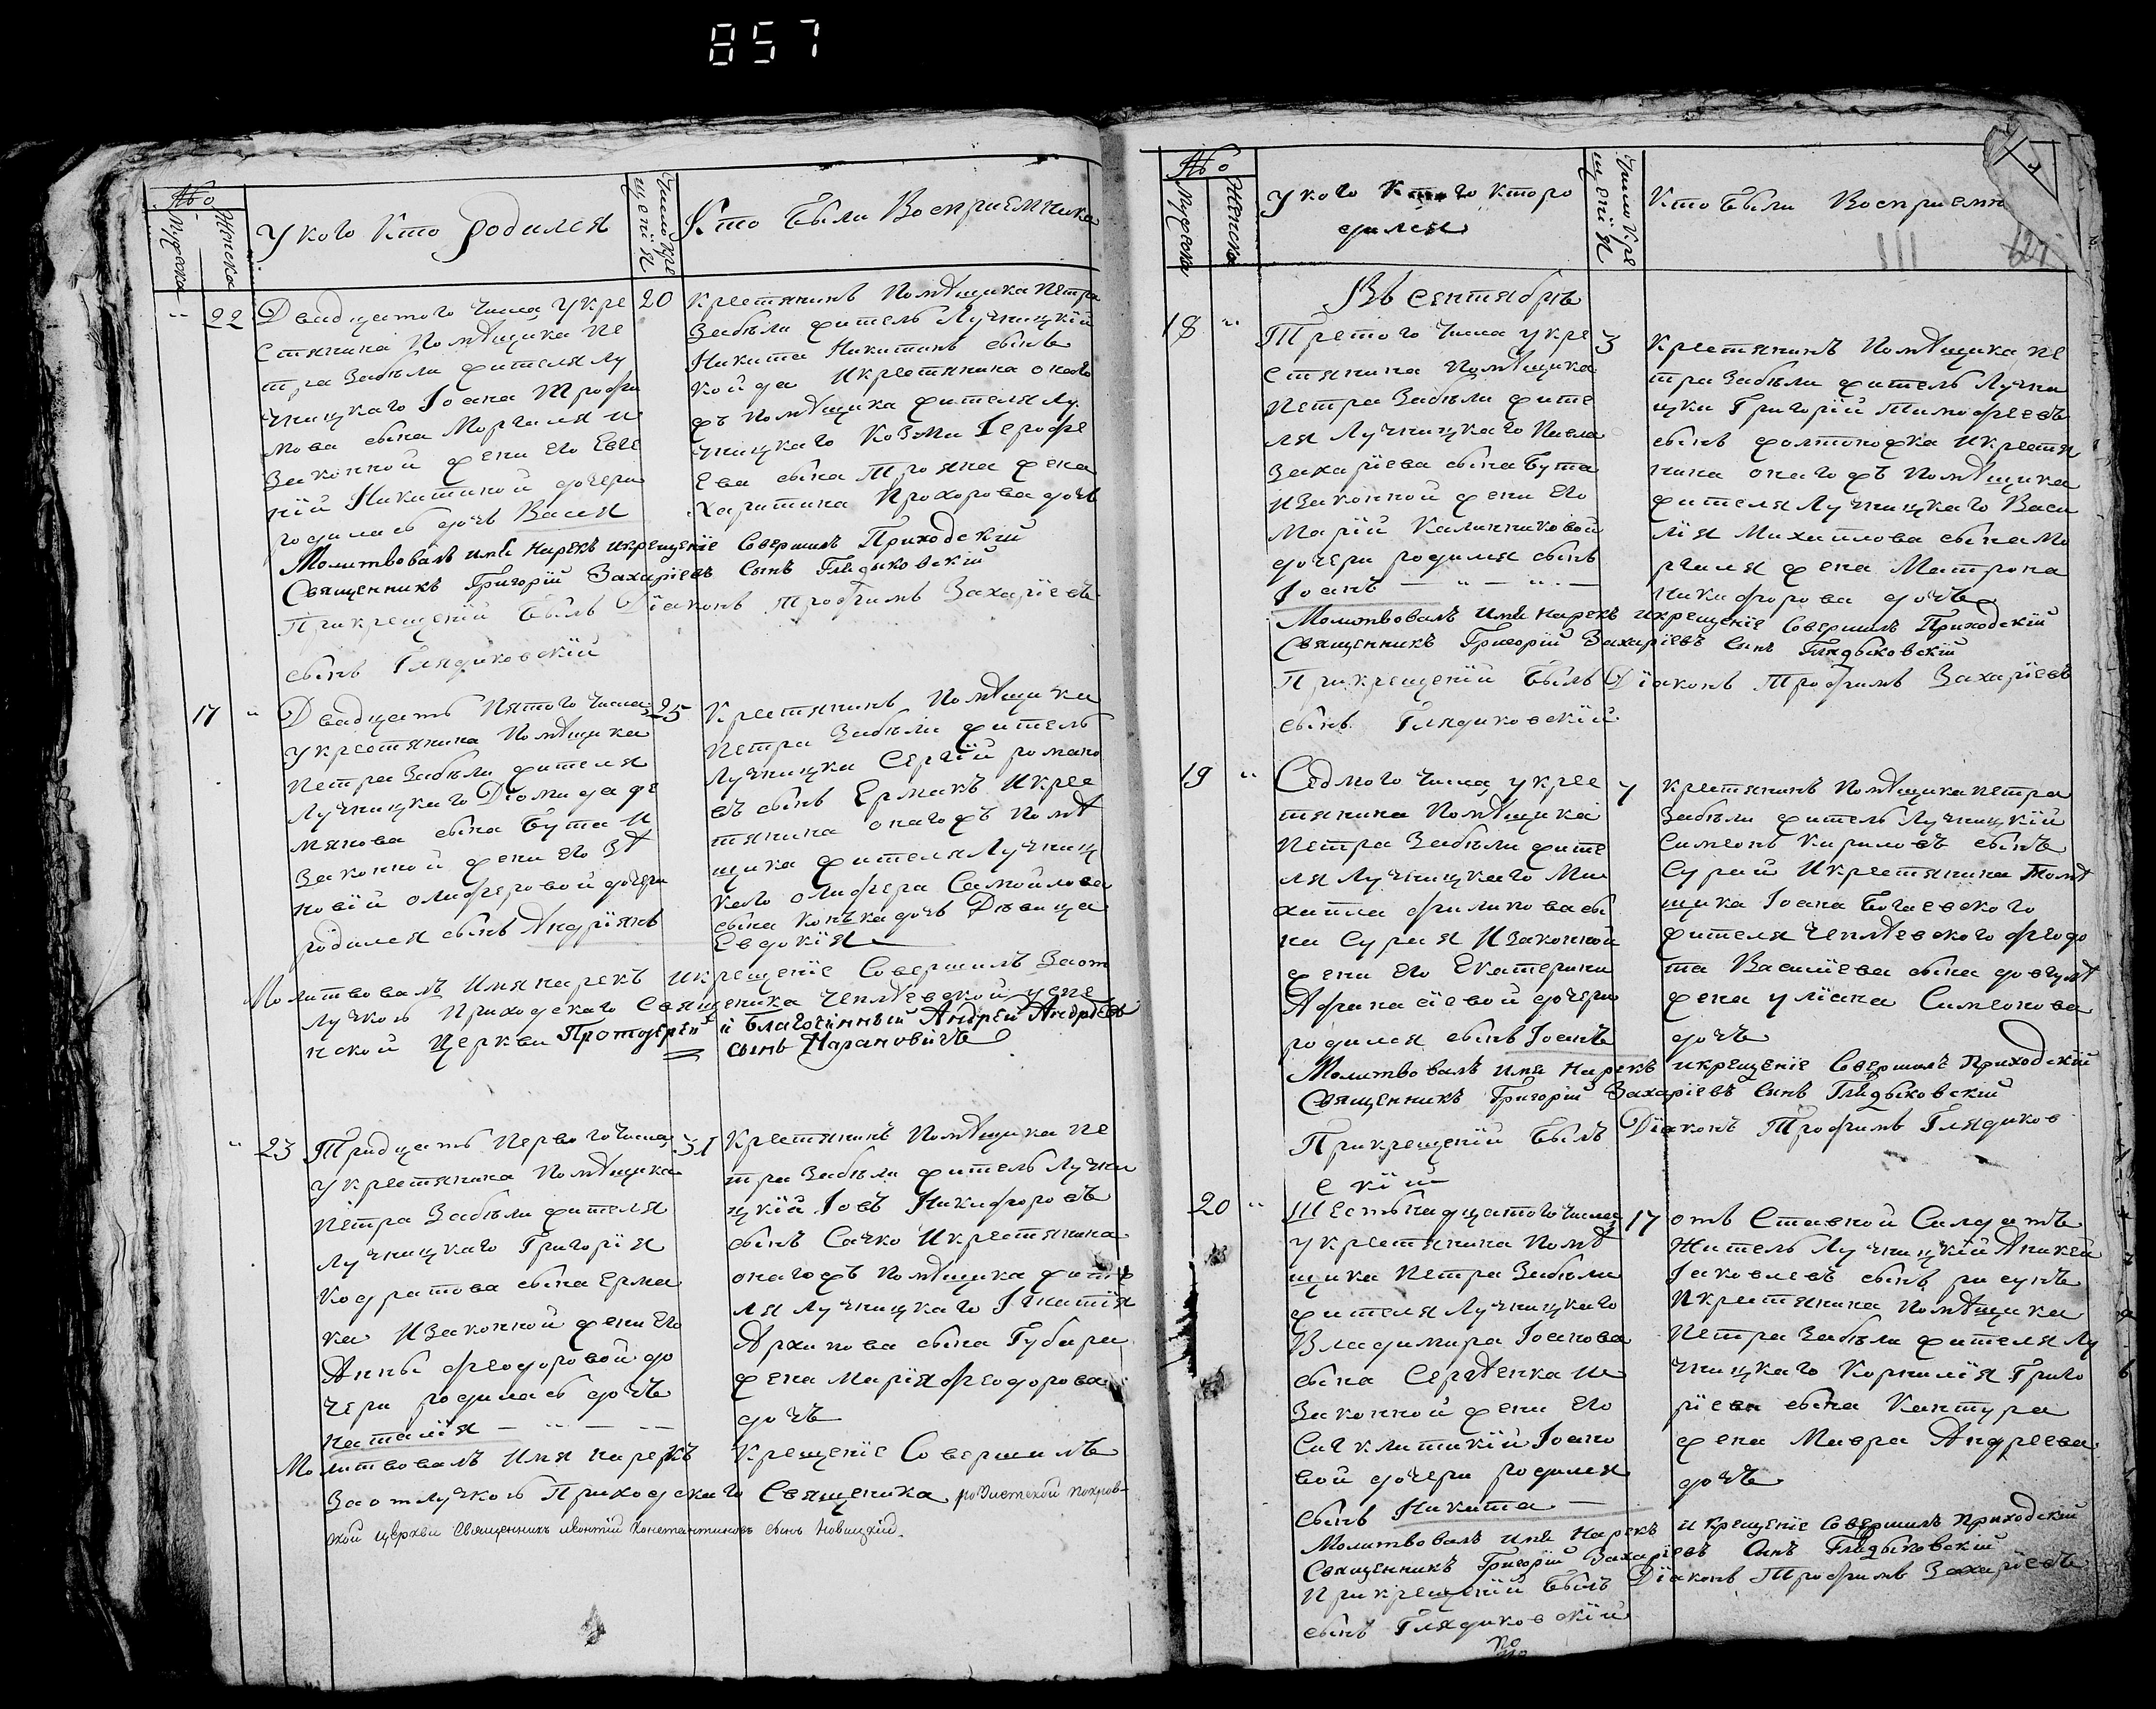 857
№
Мужеска
Женска
У кого кто родился
Число кре
щенїя
Кто были Восприемники
" 22
Двадцятого числа у кре
стянина помѣщика Пе
тра Забѣли жителя Лу
чницкаго Iоана Трофи
мова сына Моргаля и
законной жени его Евге
нїй Никитиной дочери
родилась дочь Васса
20
крестянинъ помѣщика Петра
Забѣли житель Лучницкїй
Никита Никитинъ сынъ
и крестянина онаго
жъ помѣщика жителя Лу
чницкаго Козми Iерофе
ева сына Трояна жена
Харитина Прохорова дочь
Молитвовалъ имя нарекъ и крещенїе совершилъ Приходскїй
Священникъ Григорїй Захарїевъ сынъ Глядиковскїй
При крещенїи былъ Дїаконъ Трофимъ Захарїевъ
сынъ Глядиковскїй
17 "
Двадцять пятого числа
у крестянина помѣщика
Петра Забѣли жителя
Лучницкаго Дïомида де
мянова сына Бута и
законной жени его Зѣ
новїй Олиферовой дочери
родился сынъ Андрїянъ
25
крестянинъ помѣщика
Петра Забѣли житель
Лучницки Сергїй романо
въ сынъ Ермакъ и крес
тянина онагожъ помѣ
щика жителя Лучниц
каго Олифера Самойлова
сына дочь Дѣвица
Евдокїя
Молитвовалъ имя нарекъ и крещенїе совершилъ за от
лучкою приходскаго священика Чеплѣевской успе
нской церкви Протоїерей и Благочинный Андрей Андрїевъ
сынъ Нарановичъ
" 23
Тридцять первого числа
у крестянина помѣщика
Петра Забѣли жителя
Лучницкаго Григорїя
Кодратова сына Ерма
ка и законной жени его
Анны феодоровой до
чери родилась дочь
Наталїя
31
крестянинъ помѣщика Пе
тра Забѣли житель Лучни
цкїй Iовъ Никифоровъ
сынъ Сачко и крестянина
онагожъ помѣщика жите
ля Лучницкаго Iгнатїя
Архипова сына Губара
жена Марїя феодорова
дочь
Молитвовалъ имя нарекъ крещенїе совершилъ
за отлучкою приходскаго священика покров-
ской церкви священникъ Константиновъ сынъ Новицкїй.
№
Мужеска
Женска
У кого кто ро
дился
Число кре
щенїя
Кто были Восприемн
III
В сентябрѣ
18 "
Третого числа у кре
стянина помѣщика
Петра Забѣли жите
ля Лучницкаго Павла
Захарїева сына Бута
и законной жени его
Марїй Калинниковой
дочери родился сынъ
Iоанъ
3
крестянинъ помѣщика Пе
тра Забѣли житель Лучни
цки Григорїй Тимофеевъ
сынъ и крестя
нина онагожъ помѣщика
жителя Лучницкаго Васи
лїя Михайлова сына Мо
ргаля жена Матрона
Никифорова дочь
Молитвовалъ имя нарекъ и крещенїе совершилъ Приходскїй
Священникъ Григорїй Захарїевъ сынъ Глядыковскїй
При крещенїи былъ Дїаконъ Трофимъ Захарїевъ
сынъ Глядиковскїй
19 "
Седмого числа у крес
тянина помѣщика
Петра Забѣли жите
ля Лучницкаго Ми
хаила Филипова сы
на Сурая и законной
жени его Екатерини
Афанасїевой дочери
родился сынъ Iоанъ
7
крестянинъ помѣщика Петра
Забѣли житель Лучницкїй
Симеонъ Кириловъ сынъ
Сурай и крестянина помѣ
щика Iоана Богаевского
жителя Чеплѣевского феодо
та Василїева сына
жена Улїана Симеонова
дочь
Молитвовалъ имя нарекъ и крещенїе совершилъ Приходскїй
Священникъ Григорїй Захарїевъ сынъ Глядыковскїй
При крещенїи былъ Дїаконъ Трофимъ Глядиков
скїй
20 "
Шестьнадцятого числа
у крестянина помѣ
щика Петра Забѣли
жителя Лучницкаго
Владимира Iоанова
сына Сергѣенка и
законной жени его
Сигклитикїй Iоано
вой дочери родился
сынъ Никита
17
отъ ставной Салдатъ
житель Лучницкїй Аникей
Iаковлевъ сынъ
и крестянина помѣщика
Петра Забѣли жителя Лу
чницкаго Корнилїя Григо
рїева сына Кантура
жена Мавра Андреева
дочь
Молитвовалъ имя нарекъ и крещенїе совершилъ Приходскїй
Священникъ Григорїй Захарїевъ сынъ Глядыковскїй
При крещенїи былъ Дїаконъ Трофимъ Захарїевъ
сынъ Глядиковскїй